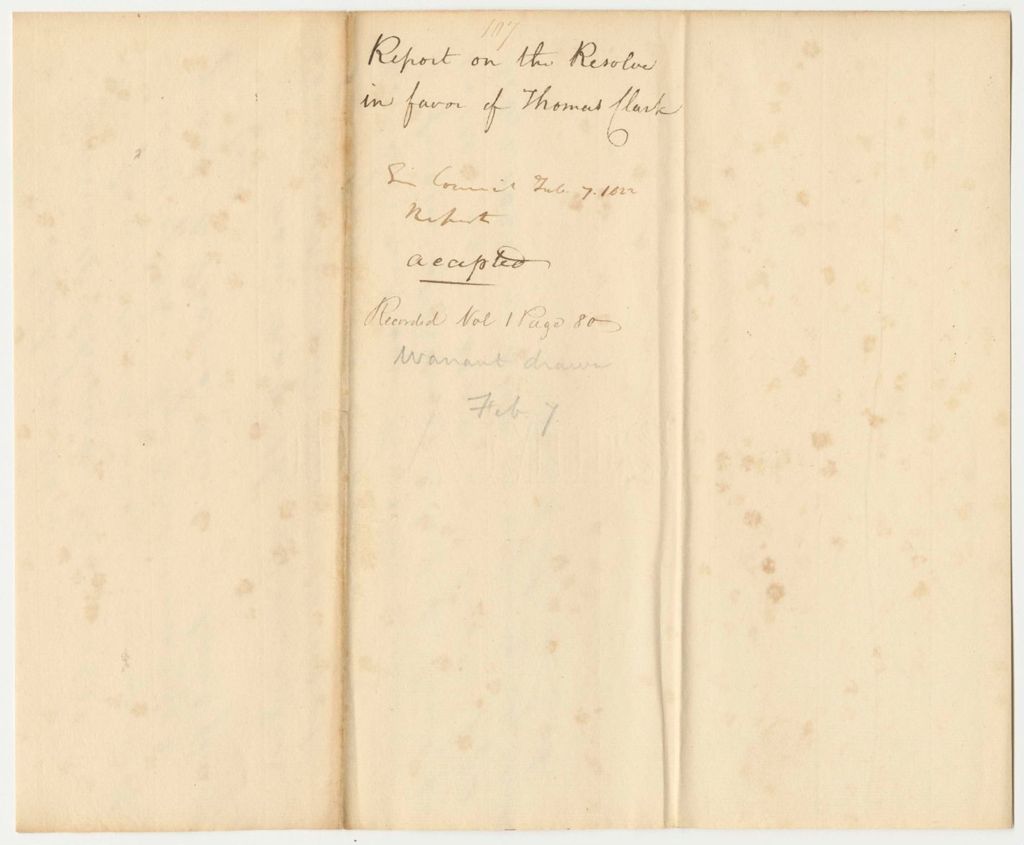 107
Report on the Resolve
in favor of Thomas Clark
In Council Feb. 7. 1822
Report
acapted
Recorded Vol 1 Page 80
Warrant drawn
Feb 7